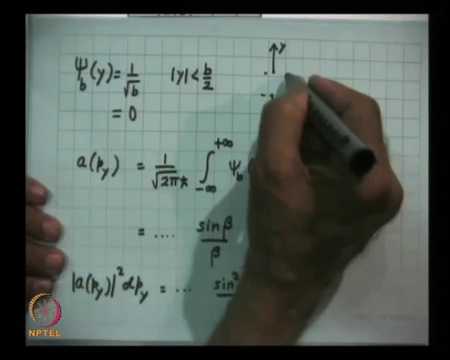 y
Ψ_b(y) = 1/√b |y| < b/2
= 0
a(p_y) = 1/√(2πħ) ∫_{-∞}^{+∞} Ψ_b(
= .... sin β / β
|a(p_y)|² dp_y = ... sin²
NPTEL